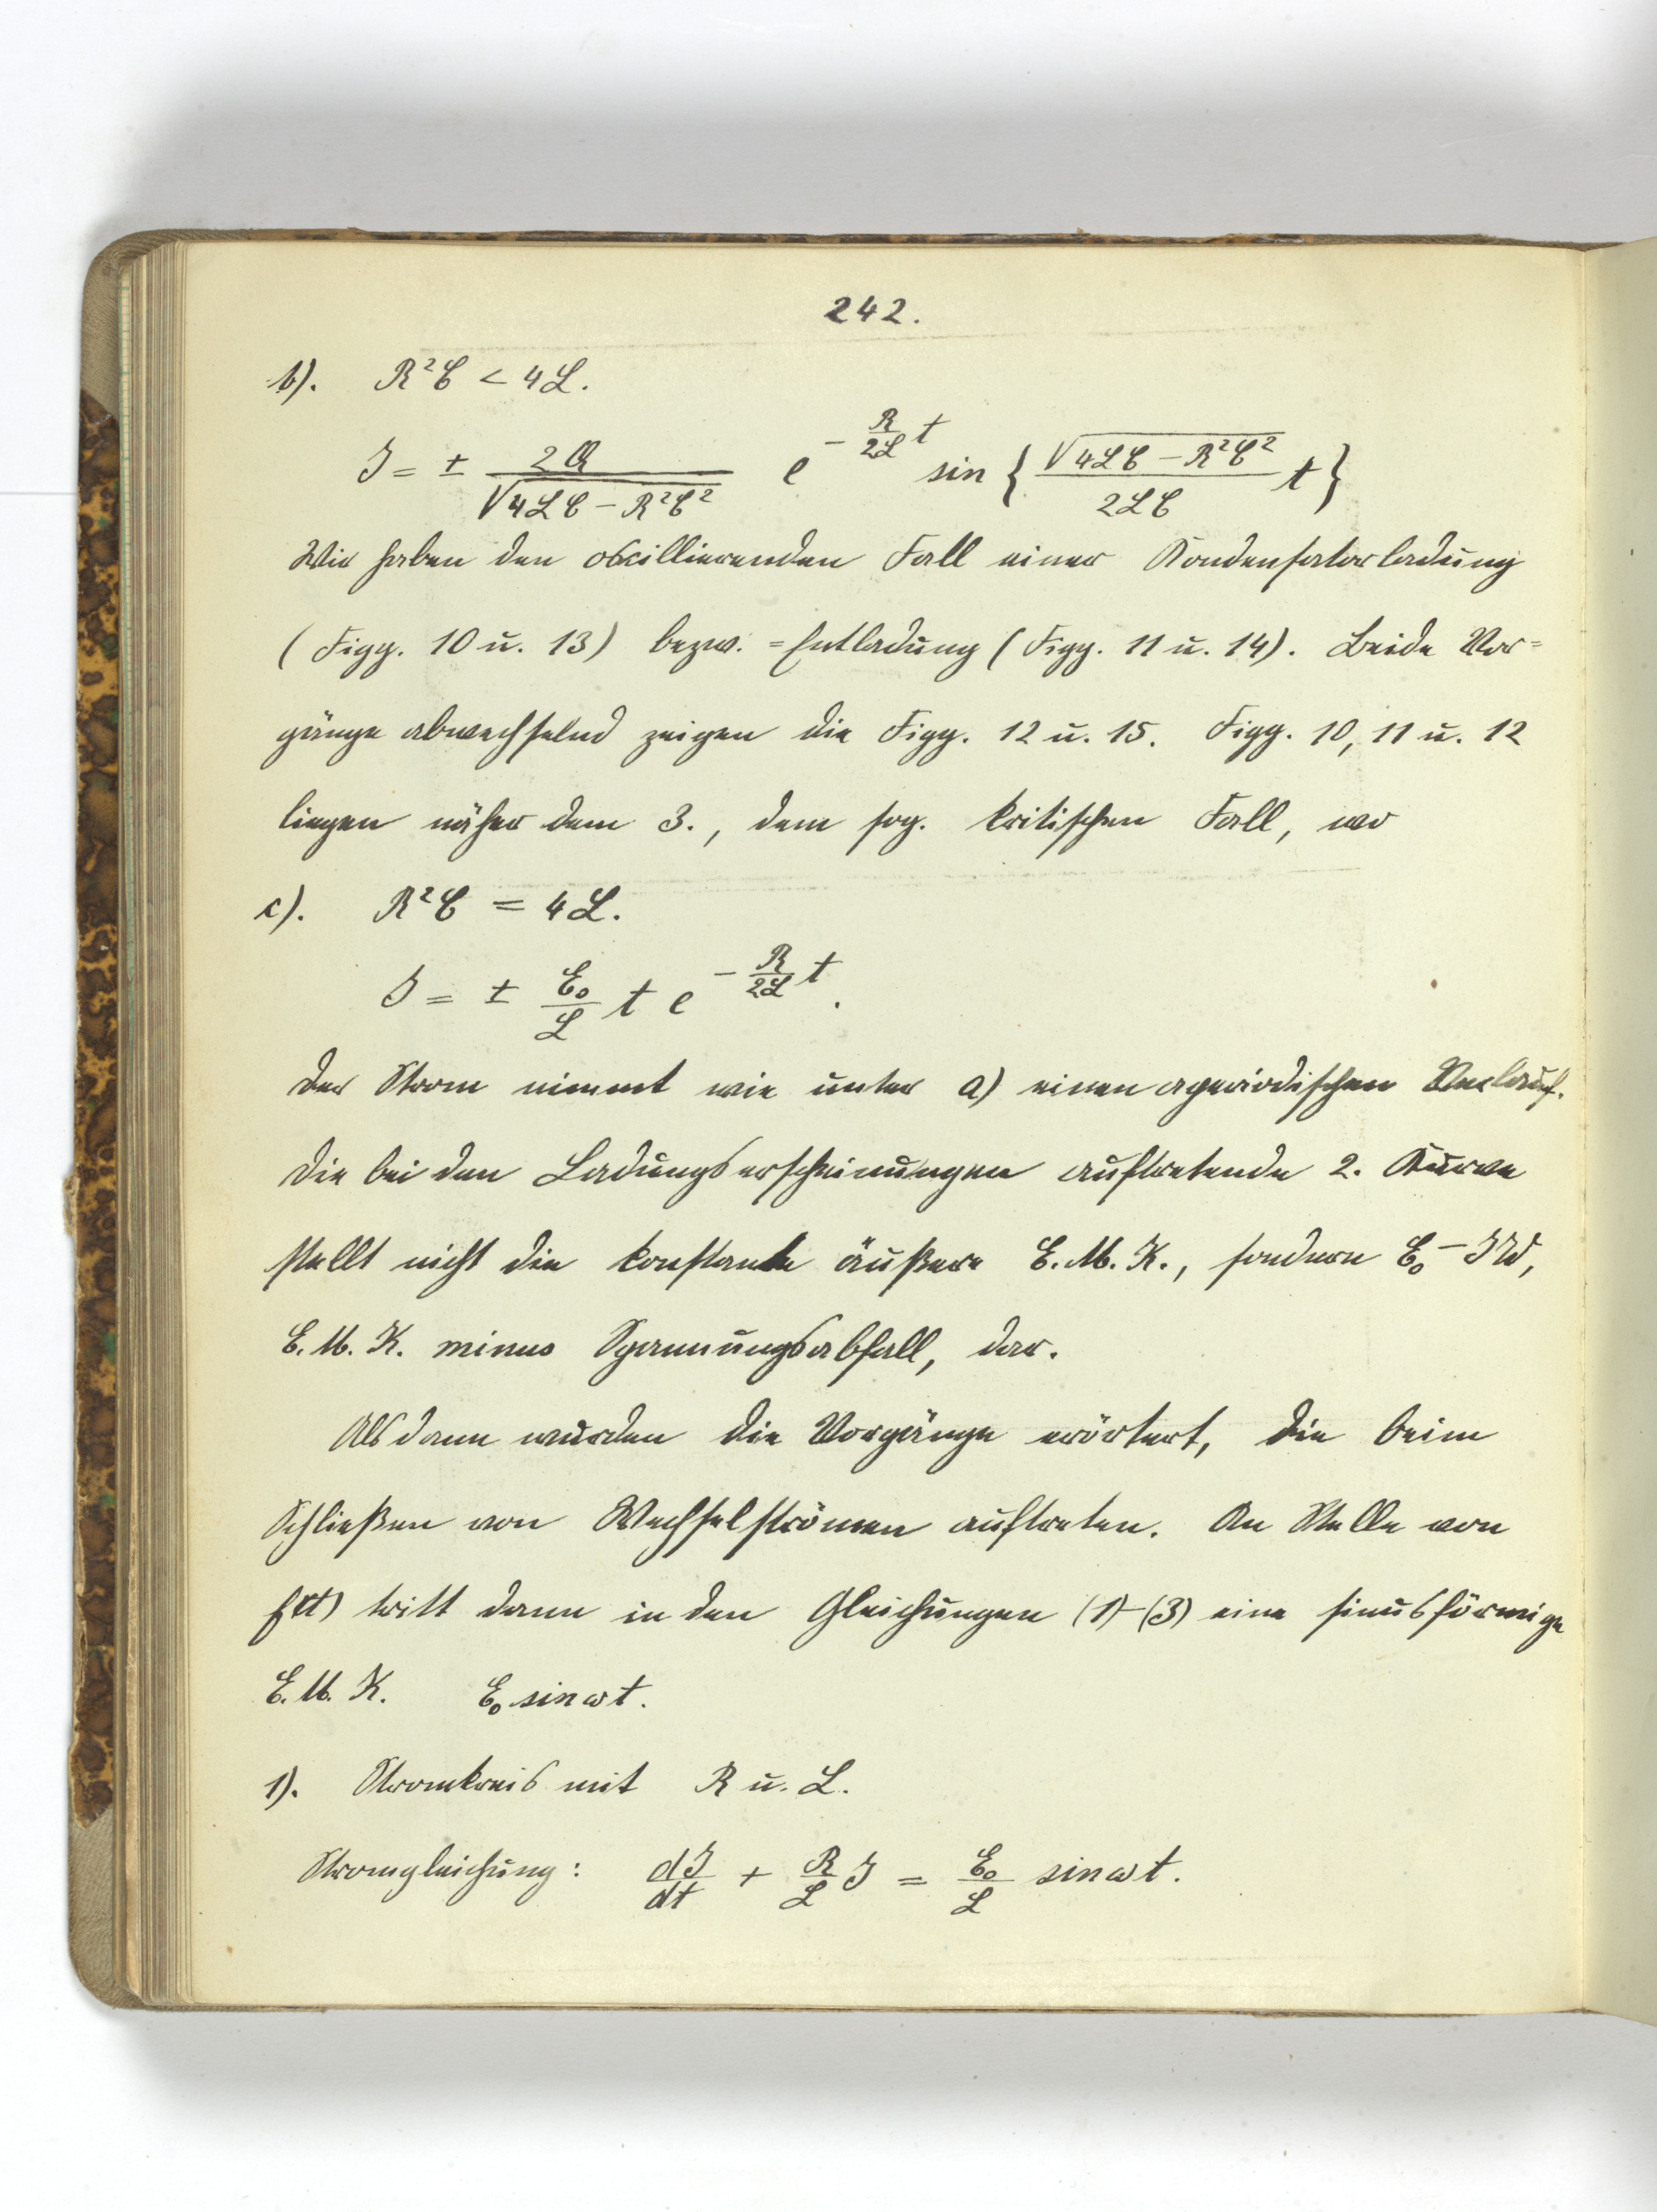 242.
b). R²C < 4L.
J = ± 2Q / √(4LC − R²C²) e^(−(R/2L)t) sin {√(4LC − R²C²) / 2LC t}
Wir haben den oscillierenden Fall einer Kondensatorladung
(Figg. 10 ü. 13) bezw. =Entladung (Figg. 11 ü. 14). Beide Vor=
gänge abwechselnd zeigen die Figg. 12 ü. 15. Figg. 10, 11 ü. 12
liegen näher dem 3., dem sog. kritischen Fall, wo
c). R²C = 4L.
J = ± E₀/L t e^(−(R/2L)t).
Der Strom nimmt wie unter a) einen aperiodischen Verlauf.
Die bei den Ladungserscheinungen auftretende 2. Kurve
stellt nicht die konstante äußere E.M.K., sondern E₀ − JW,
E.M.K. minus Spannungsabfall, dar.
Alsdann wurden die Vorgänge erörtert, die beim
Schließen von Wechselströmen auftreten. An Stelle von
f(t) tritt dann in den Gleichungen (1)-(3) eine sinusförmige
E.M.K. E₀ sin ωt.
1). Stromkreis mit R ü. L.
Stromgleichung: dJ/dt + R/L J = E₀/L sin ωt.